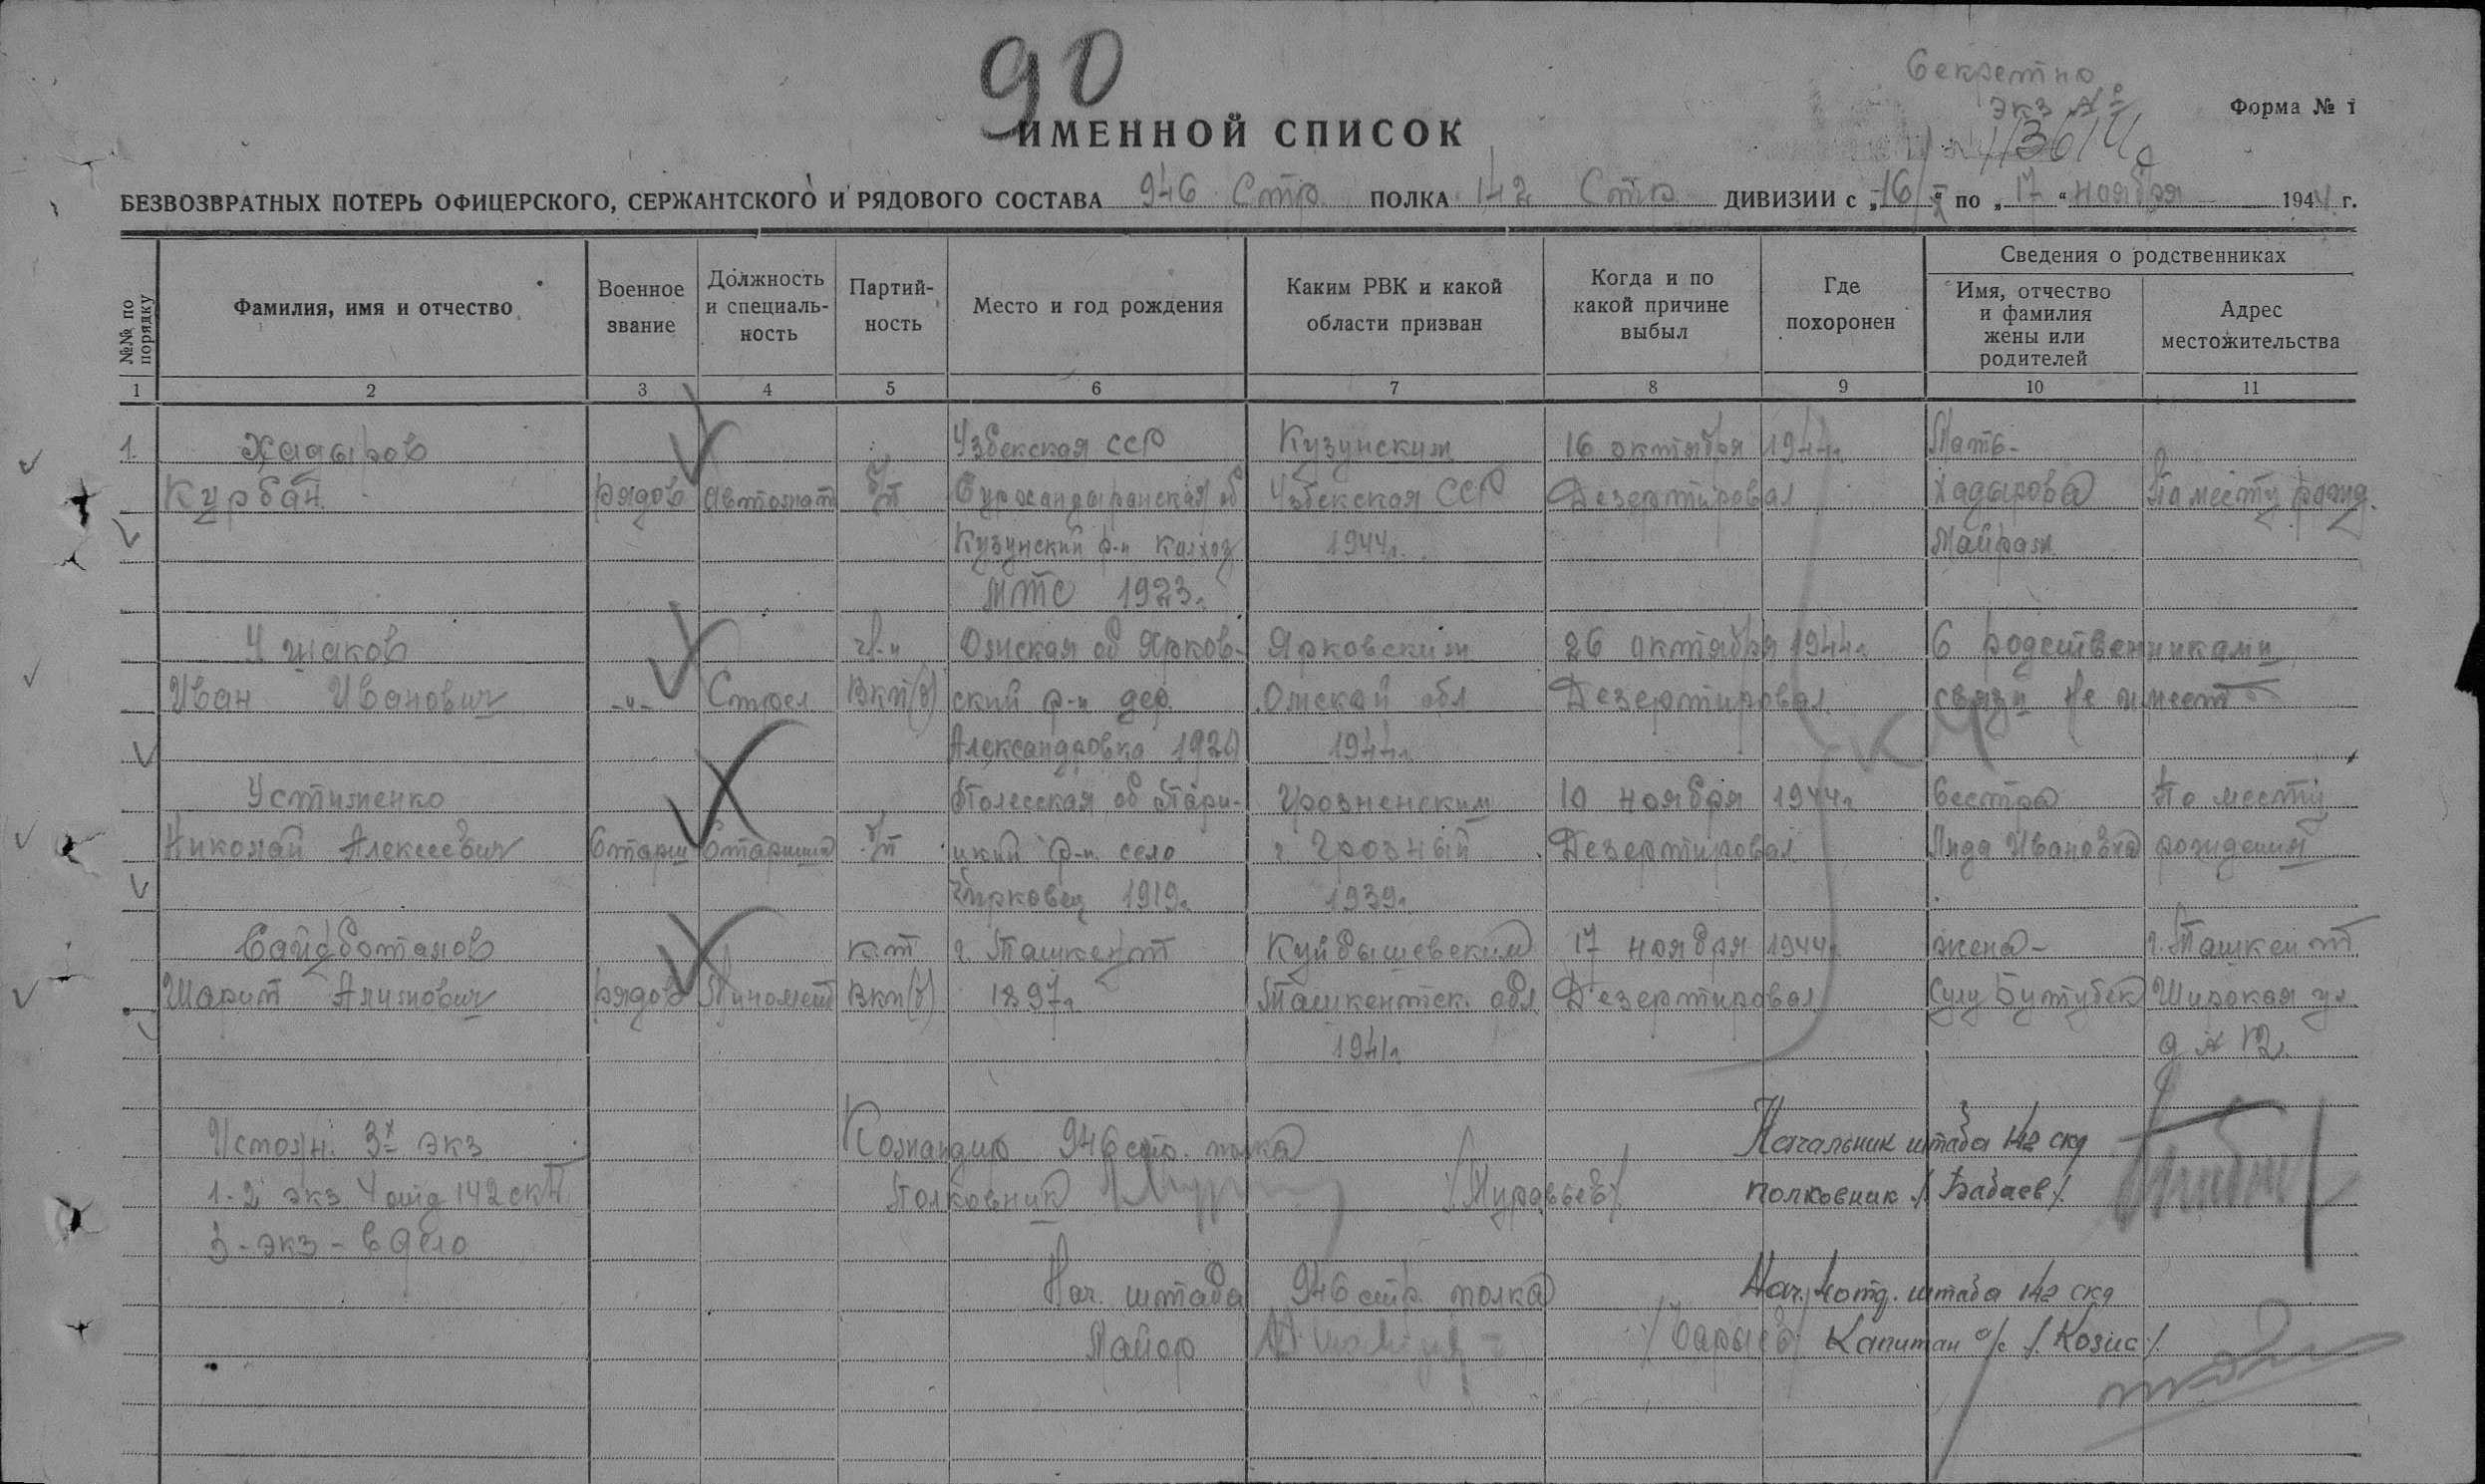 90
Секретно
экз №
Форма № 1
ИМЕННОЙ СПИСОК
БЕЗВОЗВРАТНЫХ ПОТЕРЬ ОФИЦЕРСКОГО, СЕРЖАНТСКОГО И РЯДОВОГО СОСТАВА 946 Стр. ПОЛКА 142 Стр ДИВИЗИИ с „16/X“ по „17“ ноября 1944 г.
№№ по порядку
Фамилия, имя и отчество
Военное звание
Должность и специаль-ность
Партий-ность
Место и год рождения
Каким РВК и какой области призван
Когда и по какой причине выбыл
Где похоронен
Сведения о родственниках
Имя, отчество и фамилия жены или родителей
Адрес местожительства
1 2 3 4 5 6 7 8 9 10 11
1. Хадыров Узбекская ССР Кузунским 16 октября 1944г. Мать-
Курбан рядов Автомат б/п об Узбекская ССР Дезертировал Хадырова По месту рожд.
Кузунский р-н колхоз 1944г. Майрам
МТС 1923г.
Ушаков чл-н Омская об Ярков- Ярковским 26 октября 1944г. С родственниками
Иван Иванович -"- Стрел ВКП(б) ский р-н дер. Омской обл Дезертировал связи не имеет
Александровка 1920 1944г.
Устименко Полесская об Пари- Грозненским 10 ноября 1944г. Сестра По месту
Николай Алексеевич Старш Старшина б/п цкий р-н село г. Грозный Дезертировал Лида Ивановна рождения
1919г. 1939г.
Сайдботалов к.т г. Ташкент Куйбышевским 17 ноября 1944г. жена- г. Ташкент
Шарип Алимович рядов Миномет ВКП(б) 1897г. Ташкентск. обл. Дезертировал Сулу Бутубек Широкая ул
1941г. д № 12.
Исполн. 3х экз Командир 946 стр. полка Начальник штаба 142 скд
1-2 экз 4 отд 142 скд Полковник /Муравьев/ полковник /Бабаев/
3-экз - в дело
Нач. штаба 946 стр. полка Нач. 4 отд. штаба 142 скд
Майор Капитан а/с /Козис/